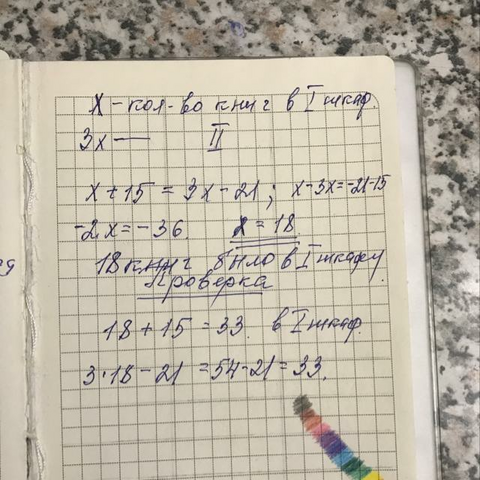 X - кол-во книг в I шкаф.
3x — II
x + 15 = 3x - 21; x-3x=-21-15
-2x = -36. x = 18
18 книг было в I шкафу.
Проверка
18 + 15 = 33. в I шкаф.
3·18 - 21 = 54-21 = 33.